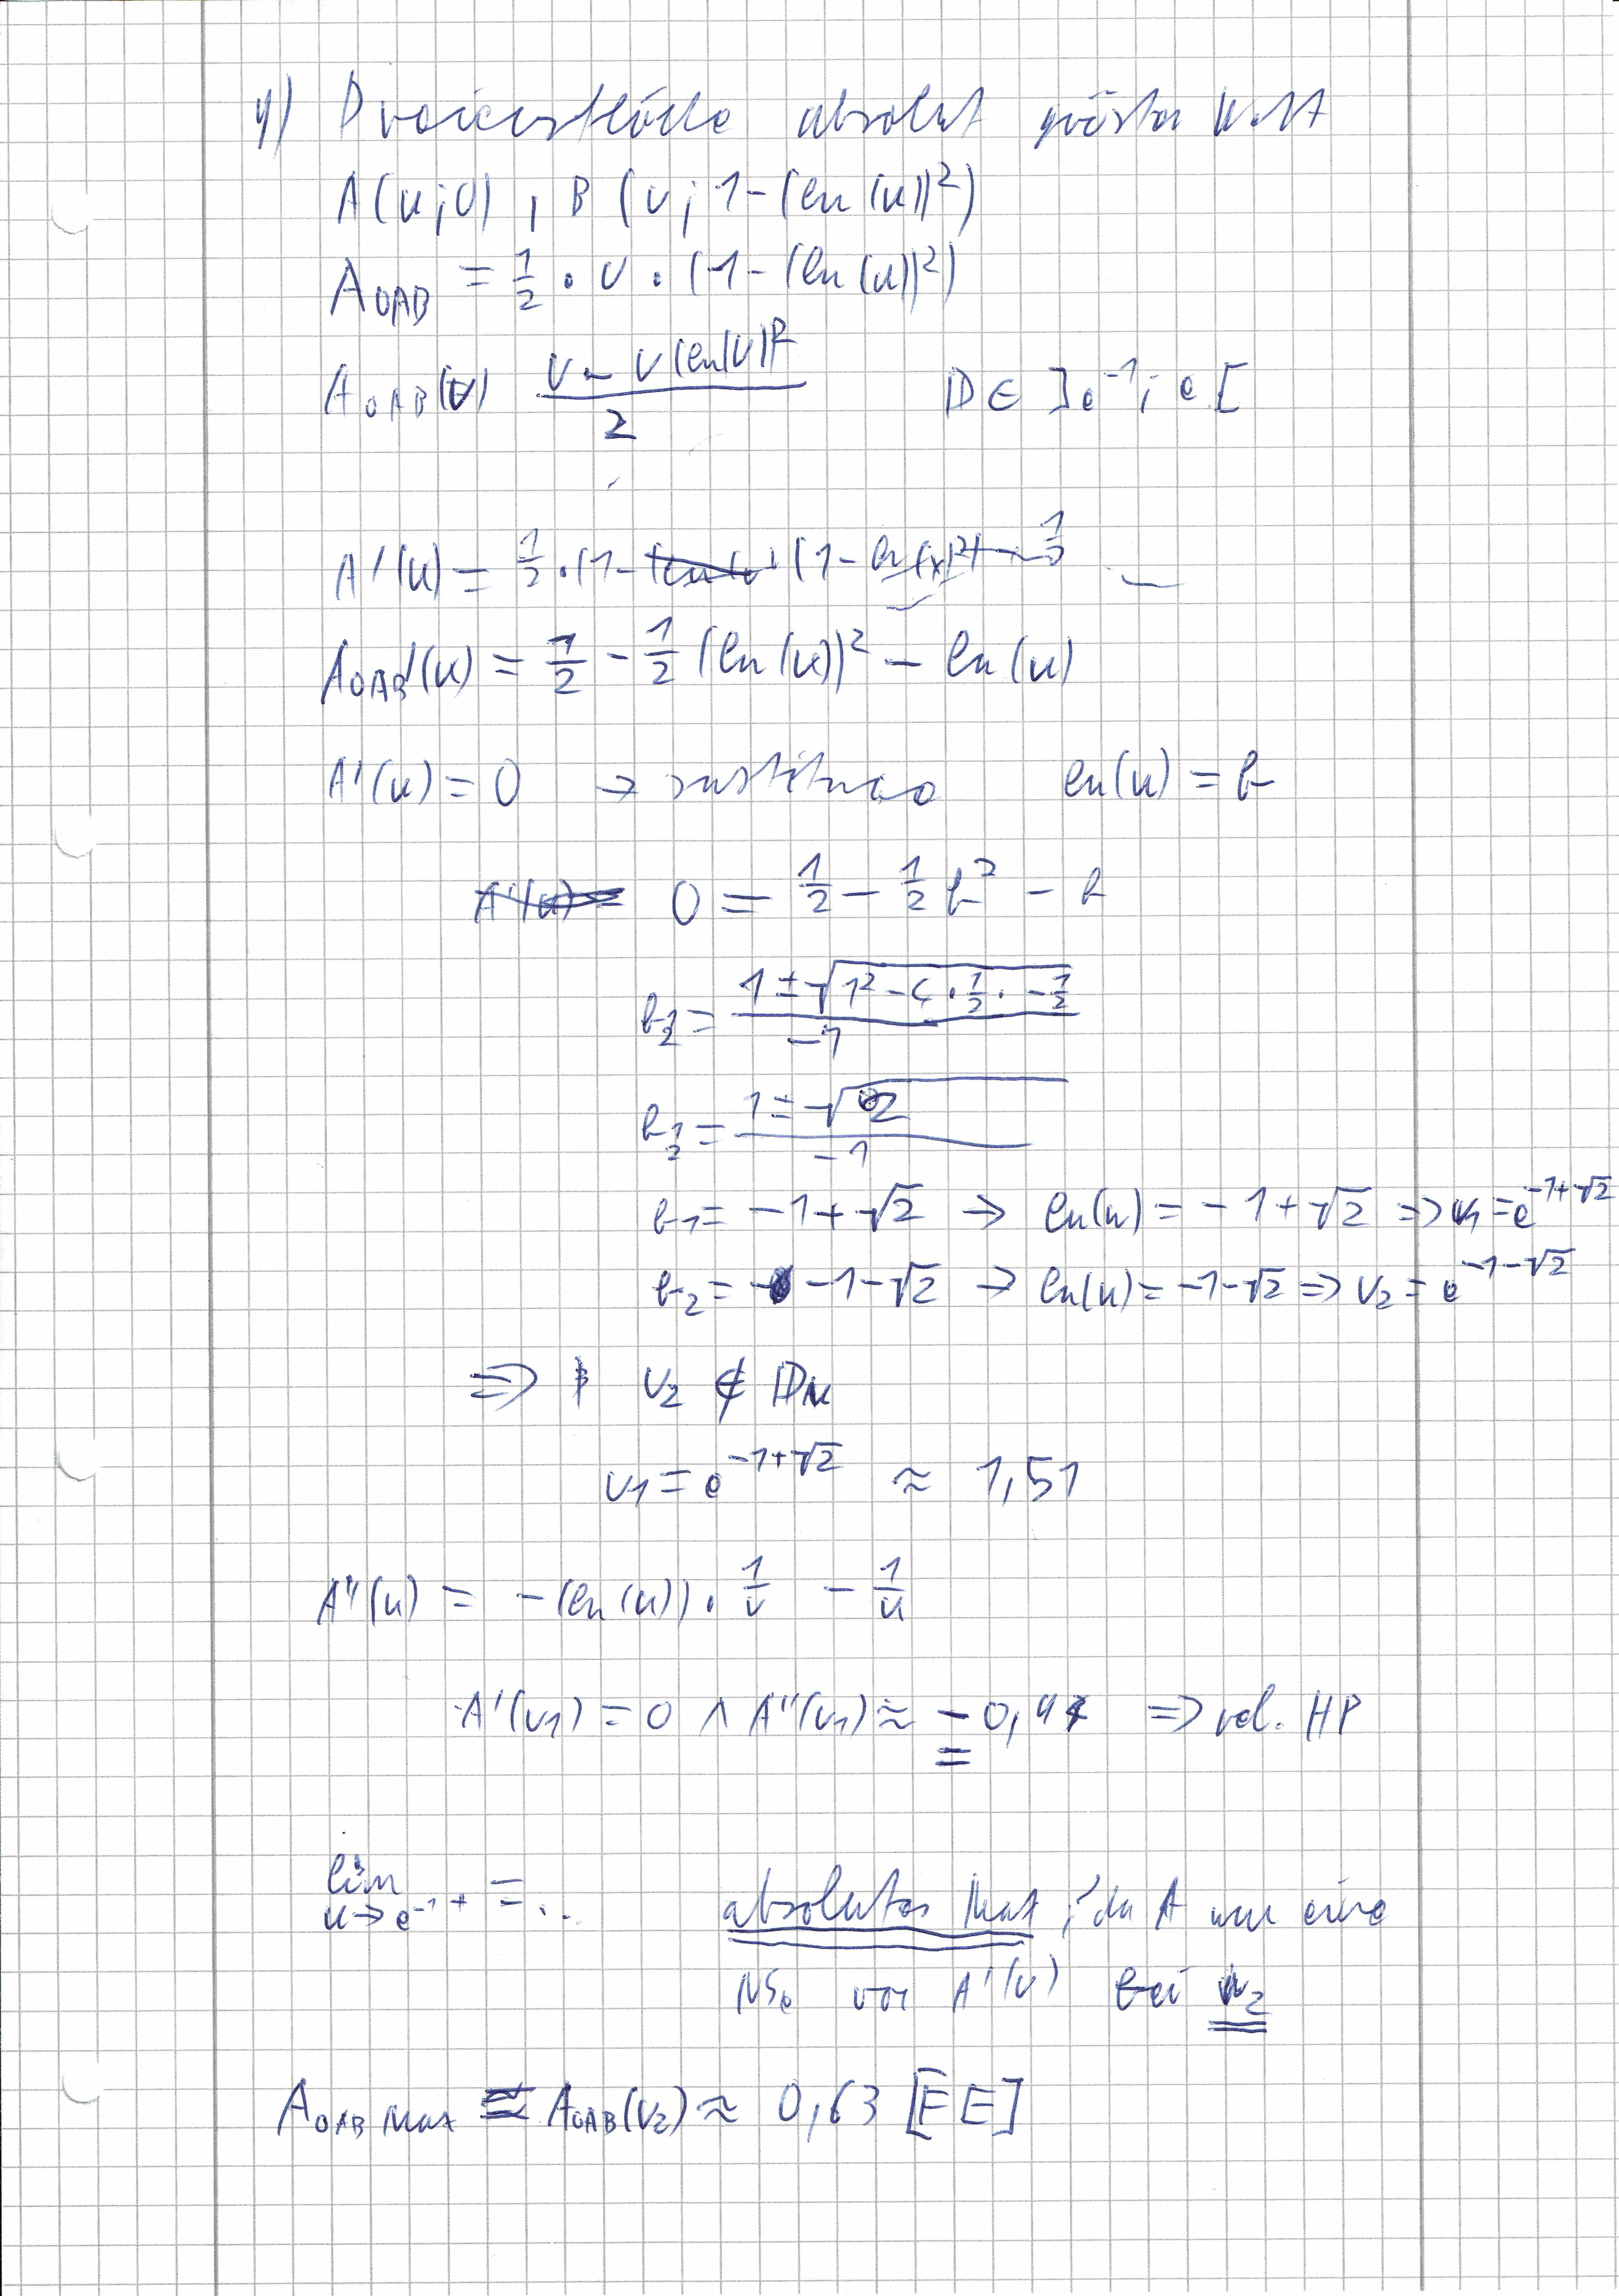 4) Dreiecksfläche absolut größter Wert
A(u;0) , B (u; 1-(ln(u))²)
A_OAB = 1/2 · u · (1-(ln(u))²)
A_OAB(u) (u - u(ln(u))²)/2   D ∈ ]e^-1; e[
A'(u) = 1/2 · (1 - (1 - ln(x)²) - 1/2
A_OAB'(u) = 1/2 - 1/2 (ln(u))² - ln(u)
A'(u) = 0 → ln(u) = b
0 = 1/2 - 1/2 b² - b
b_1/2 = (1 ± √(1² - 4 · 1/2 · -1/2))/-1
b_1/2 = (1 ± √2)/-1
b_1 = -1+√2 → ln(u) = -1+√2 ⇒ u_1 = e^(-1+√2)
b_2 = -1-√2 → ln(u) = -1-√2 ⇒ u_2 = e^(-1-√2)
⇒ u_2 ∉ D_u
u_1 = e^(-1+√2) ≈ 1,51
A''(u) = -(ln(u)) · 1/u - 1/u
A'(u_1) = 0 ∧ A''(u_1) ≈ -0,94 ⇒ rel. HP
lim u→e^-1+ = ...   absolutes Max, da A nur eine
NSt von A'(u) bei u_2
A_OAB Max = A_OAB(u_2) ≈ 0,63 [FE]